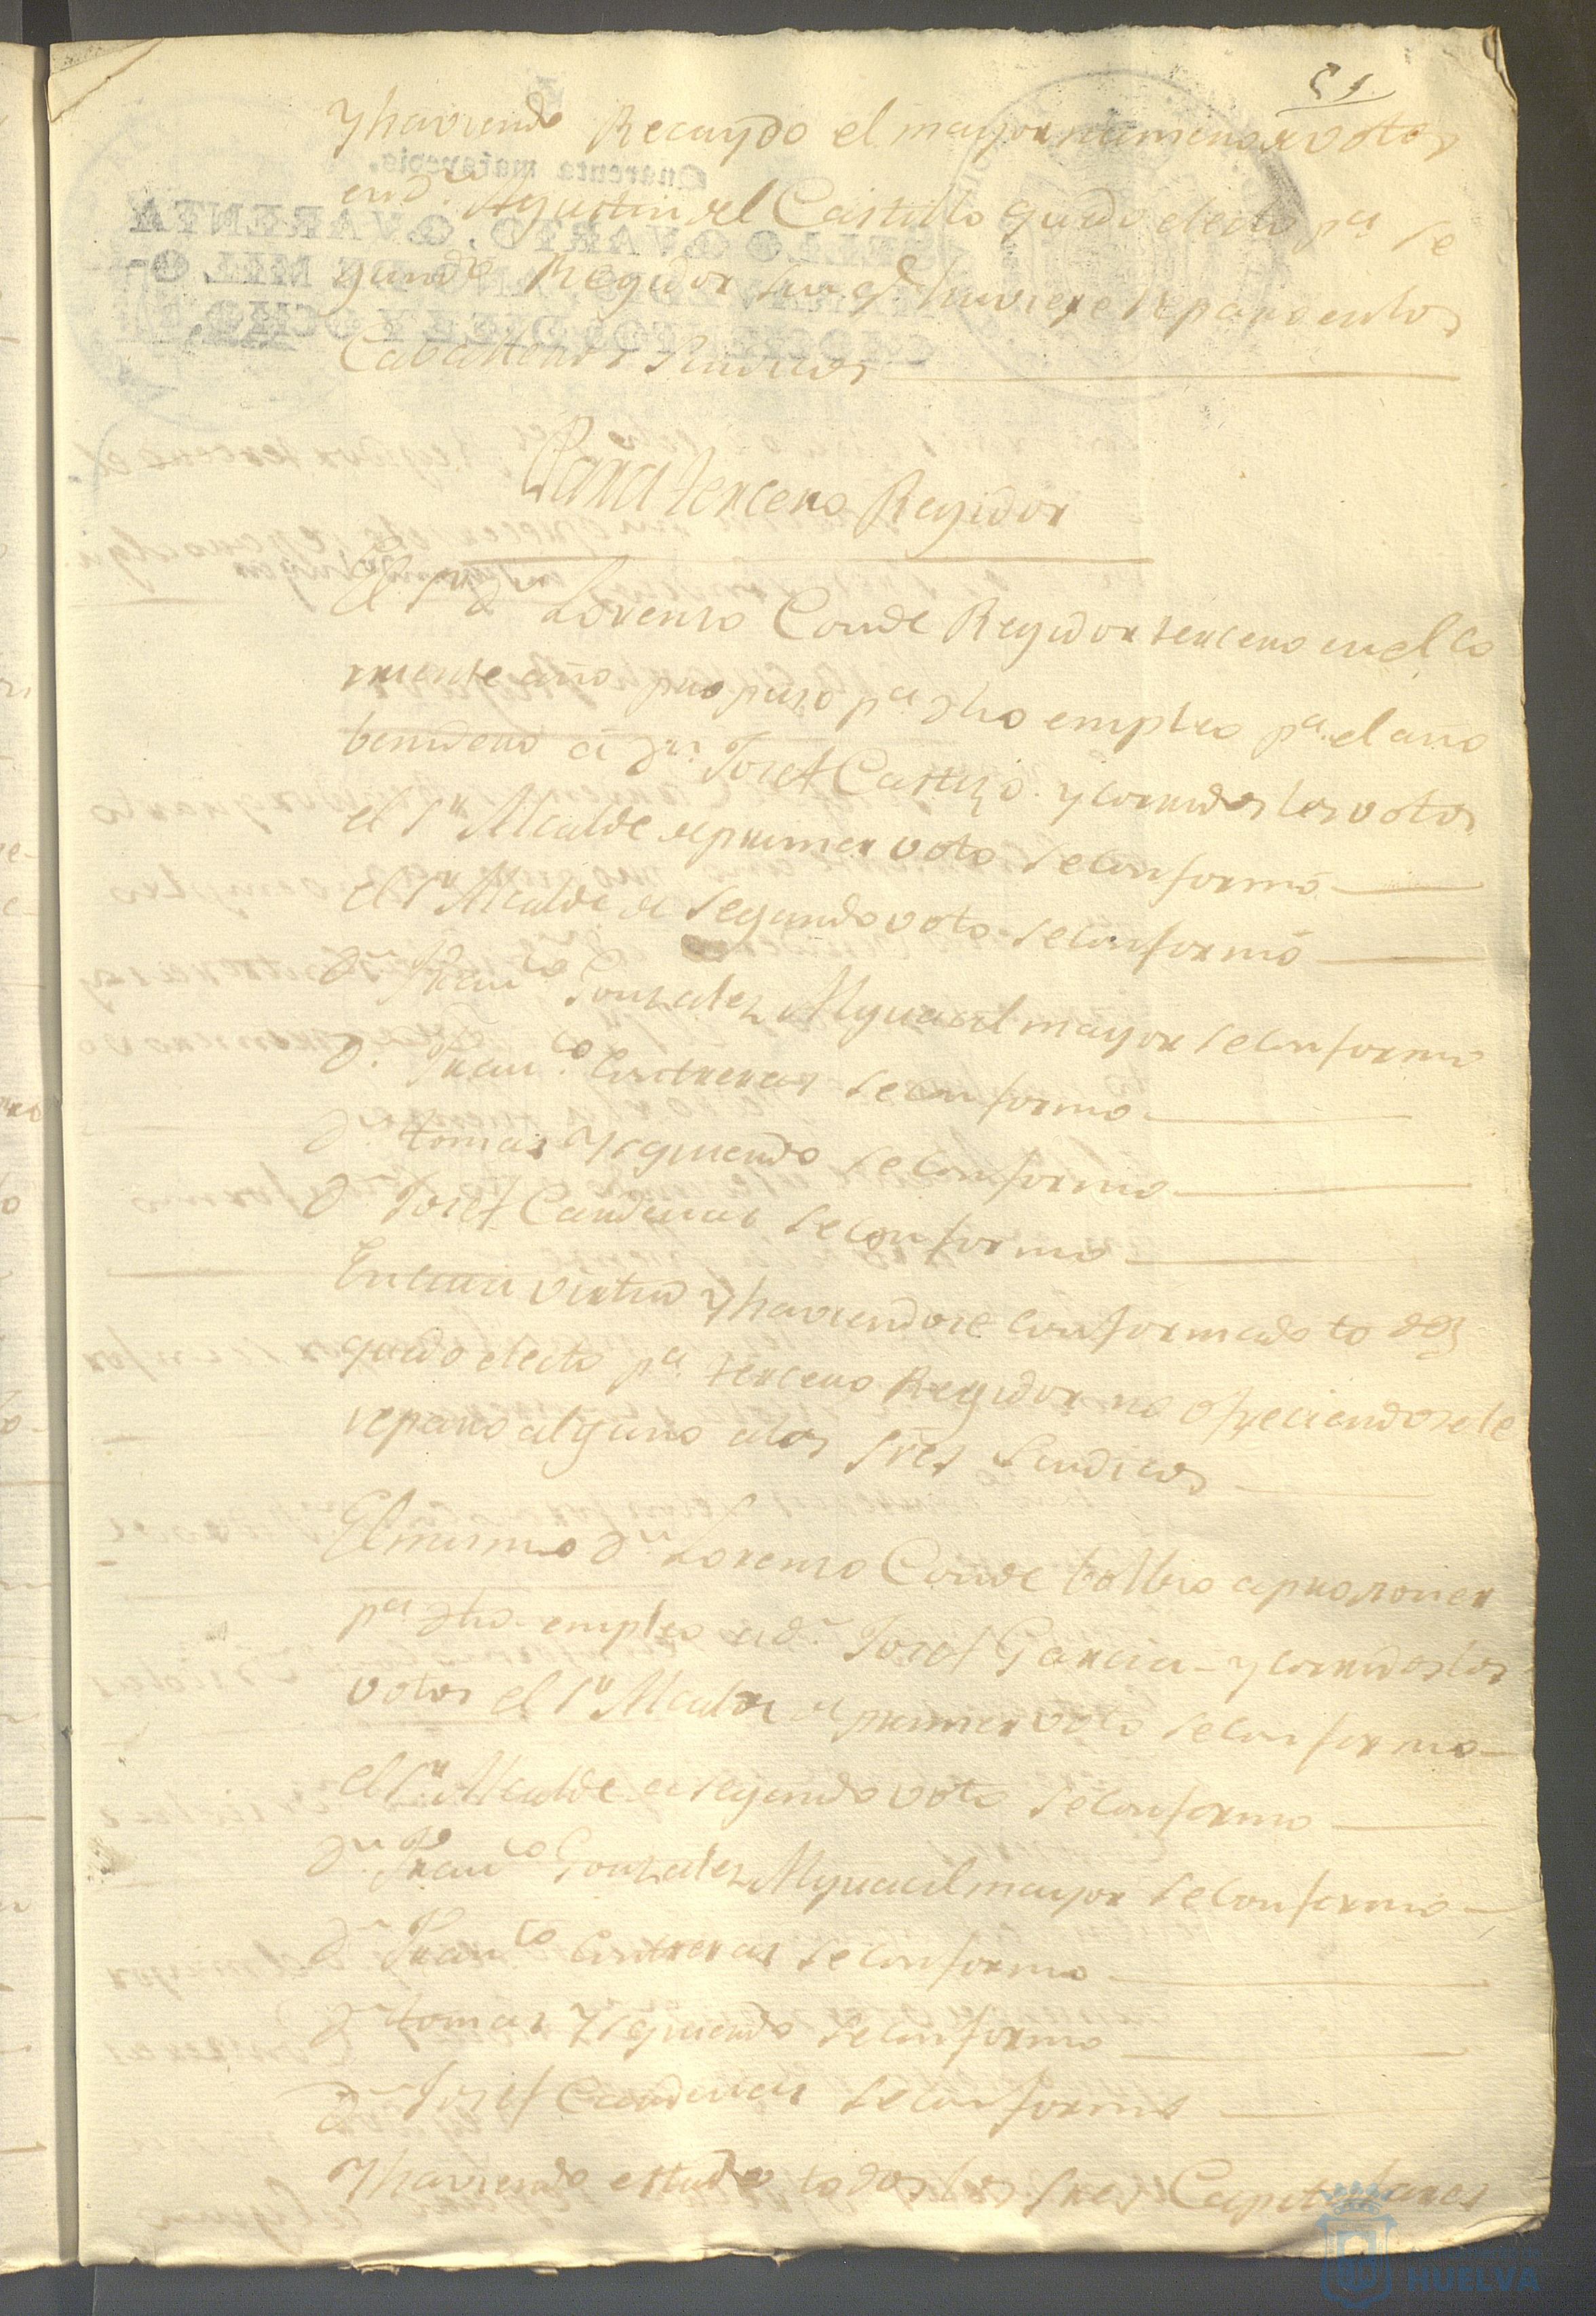 51
Y haviendo Recaydo el mayor numero de votos
en dn. Agustin del Castillo quedo electo pa. se
gundo Regidor sin qe. huviese reparo en los
Caballeros Sindicos
Para tercero Regidor
El Sr. dn. Lorenso Conde Regidor tercero en el co
rriente año propuso pa. dho empleo pa. el año
benidero á dn. Josef Castizo y corridos los votos
el Sr Alcalde de primer voto se conformó
el Sr Alcalde de segundo voto se conformó
dn Franco. Gonzales Alguacil mayor se conformo
dn. Franco. Contreras se conformo
dn. tomas Yzquierdo se conformo
dn Josef Cardenas se conformo
En cuia virtud y haviendose conformado todos
quedo electo pa. tercero Regidor no ofreciendosele
reparo alguno a los Sres Sindicos
El mismo dn. Lorenso Conde bolbio a proponer
pa dho empleo a dn. Josef Garcia y corridos los
votos el Sr Alcalde de primer voto se conformo
el Sr. Alcalde de segundo voto se conformo
dn. Franco Gonzales Alguacil mayor se conformo
dn Franco Contreras se conformo
dn tomas Yzquierdo se conformo
dn Josef Cardenas se conformo
Y haviendo estado todos los Sres Capitulares
HUELVA